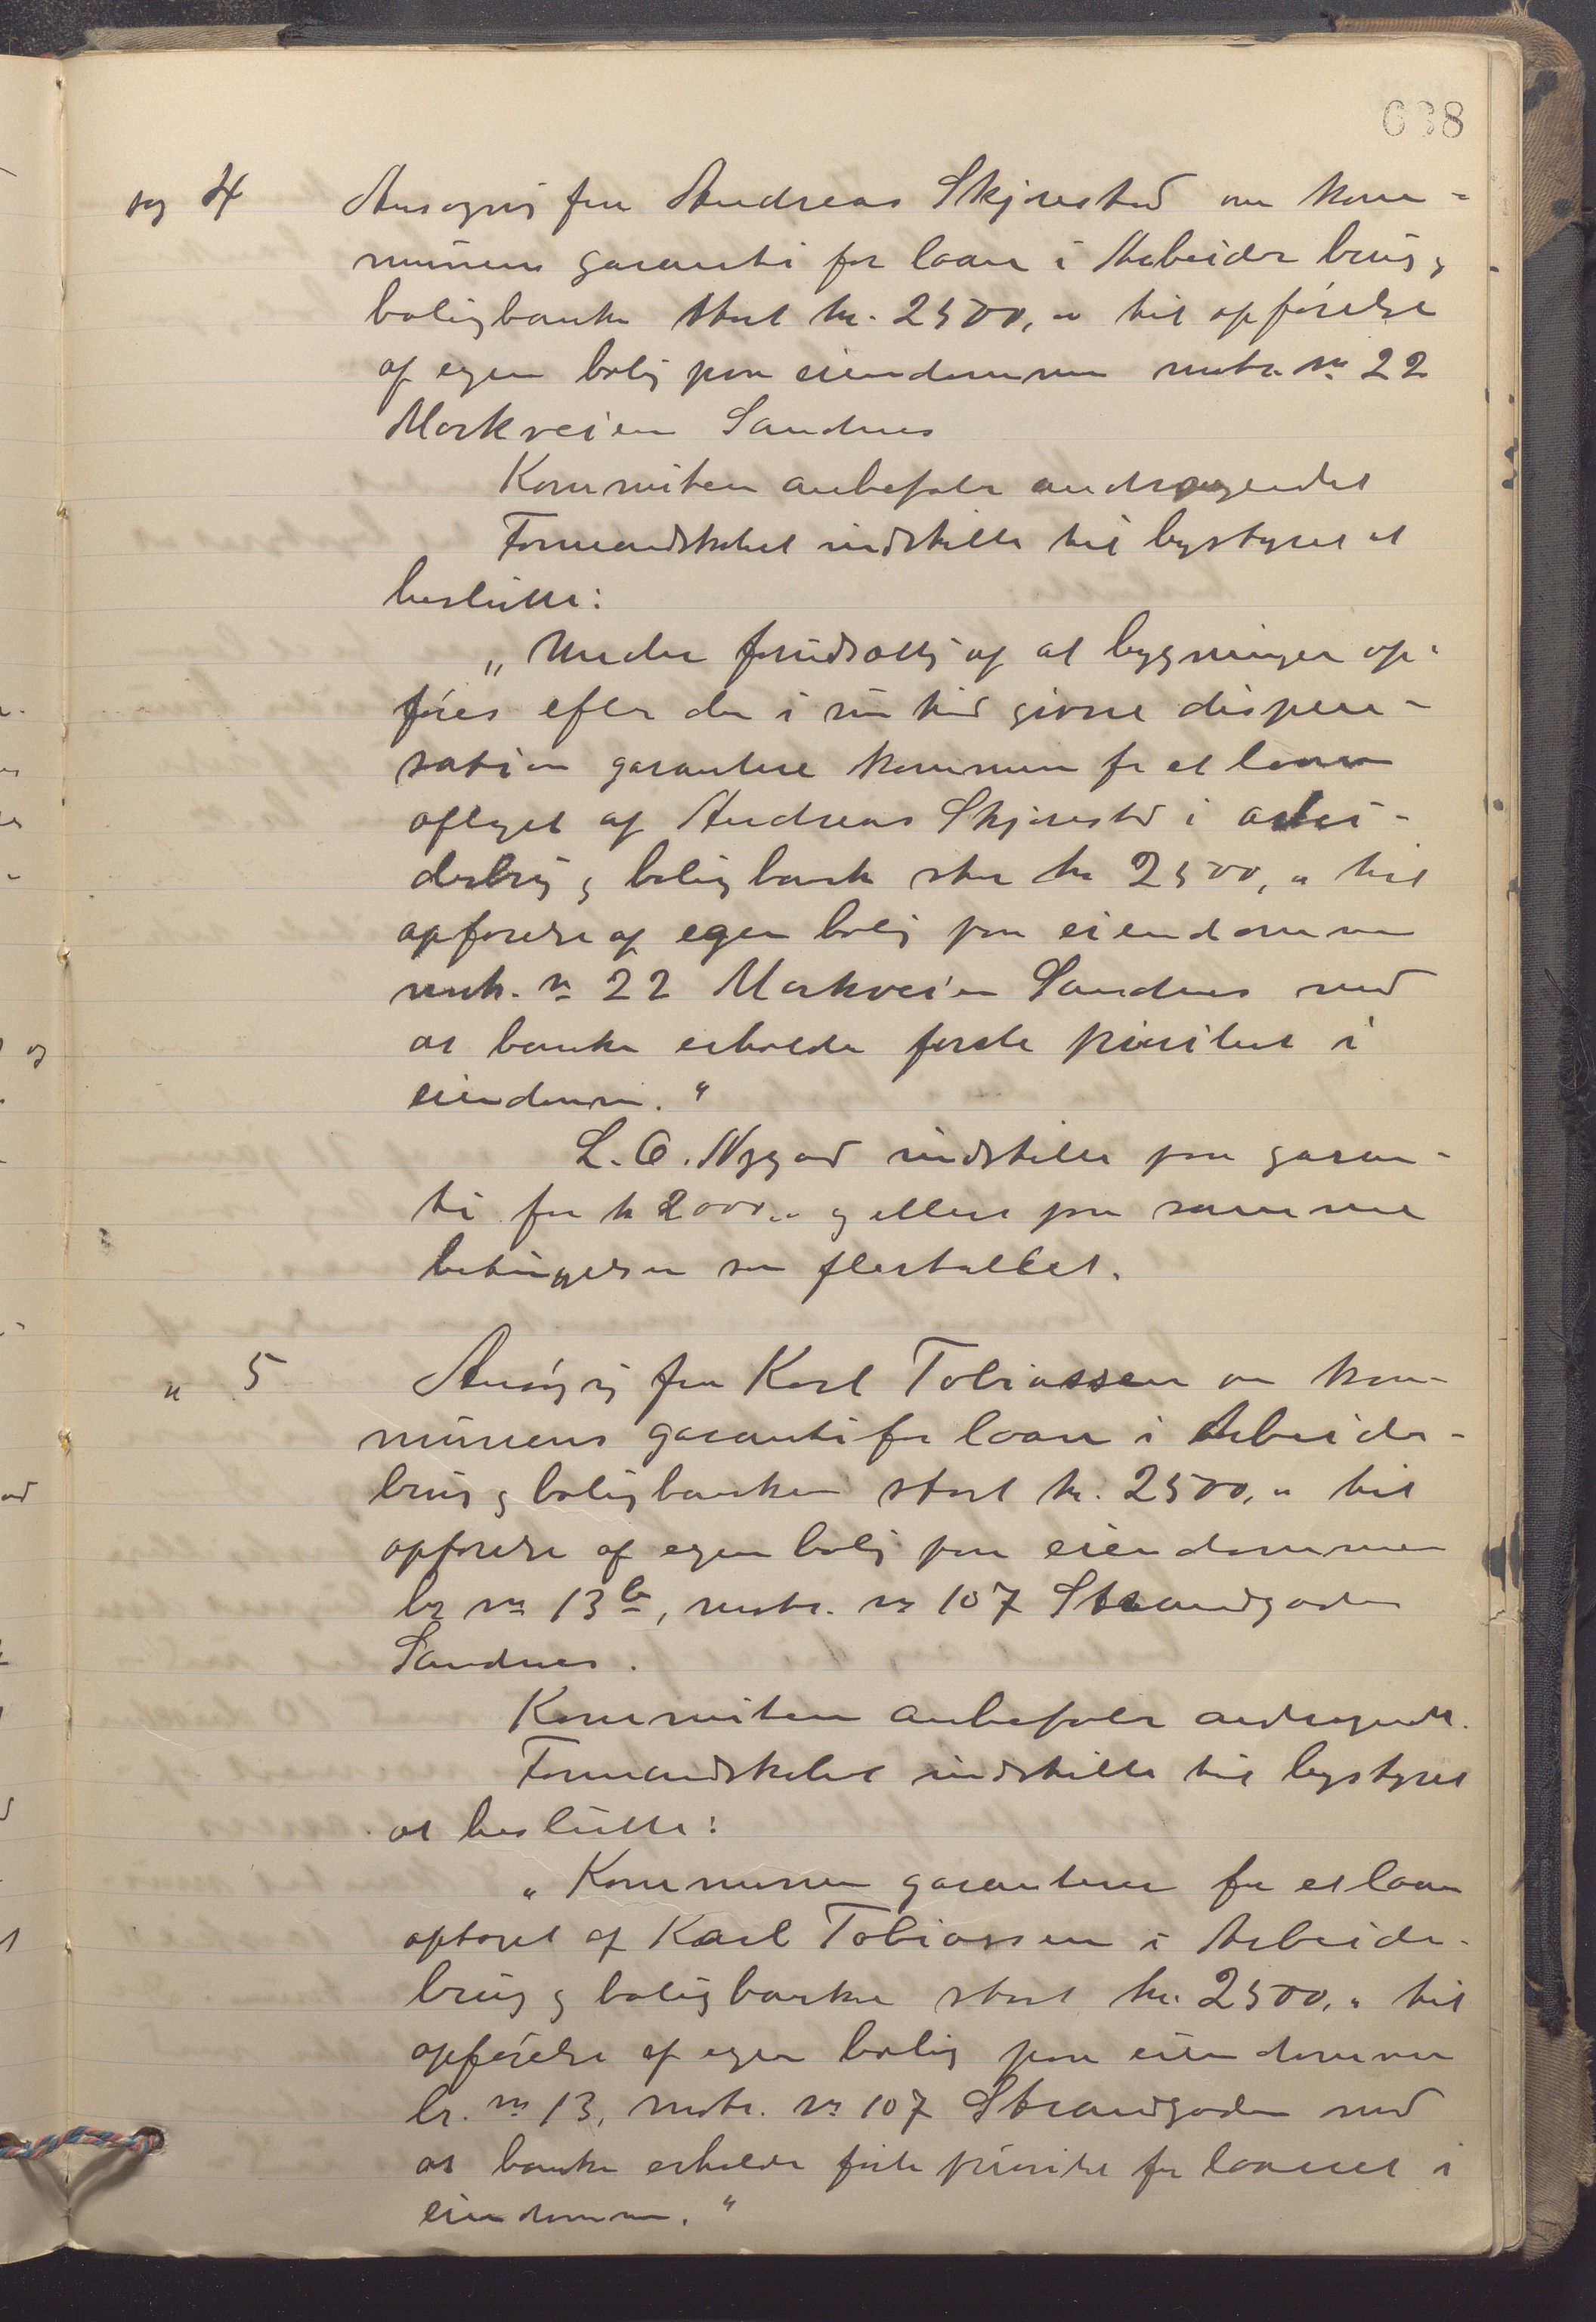 638
sag 4 Ansøgning fra Andreas Skjævestad om kom-
munens garanti for laan i Arbeider brug og
boligbanken stort kr. 2500,„ til opførelse
af egen bolig paa eiendommen matr. nr 22
Markveien Sandnes
Kommiteen anbefaler andragendet
Formandskabet indstiller til bystyret at
beslutte:
„Under forudsætning af at bygningen op-
føres efter den i sin tid givne dispen-
sation garanterer kommunen for et laan
optaget af Andreas Skjævestad i arbei-
derbrug og boligbank stor kr 2500,„ til
opførelse af egen bolig paa eiendommen
matr. nr 22 Markveien Sandnes mod
at banken erholder første prioritet i
eiendommen.“
L. O. Nygaard indstiller paa garan-
ti for kr 2000„ og ellers paa samme
betingelser som flertallet.
„ 5 Ansøgning fra Karl Tobiassen om kom-
munens garanti for laan i Arbeider-
brug og boligbanken stort kr. 2500,„ til
opførelse af egen bolig paa eiendommen
br nr 13b, matr. nr 107 Strandgaden
Sandnes.
Kommiteen anbefaler andragendet.
Formandskabet indstiller til bystyret
at beslutte:
„Kommunen garanterer for et laan
optaget af Karl Tobiassen i Arbeider-
brug og boligbanken stort kr. 2500,„ til
opførelse af egen bolig paa eiendommen
br. nr 13, matr. nr 107 Strandgaden mod
at banken erholder første prioritet for laanet i
eiendommen.“